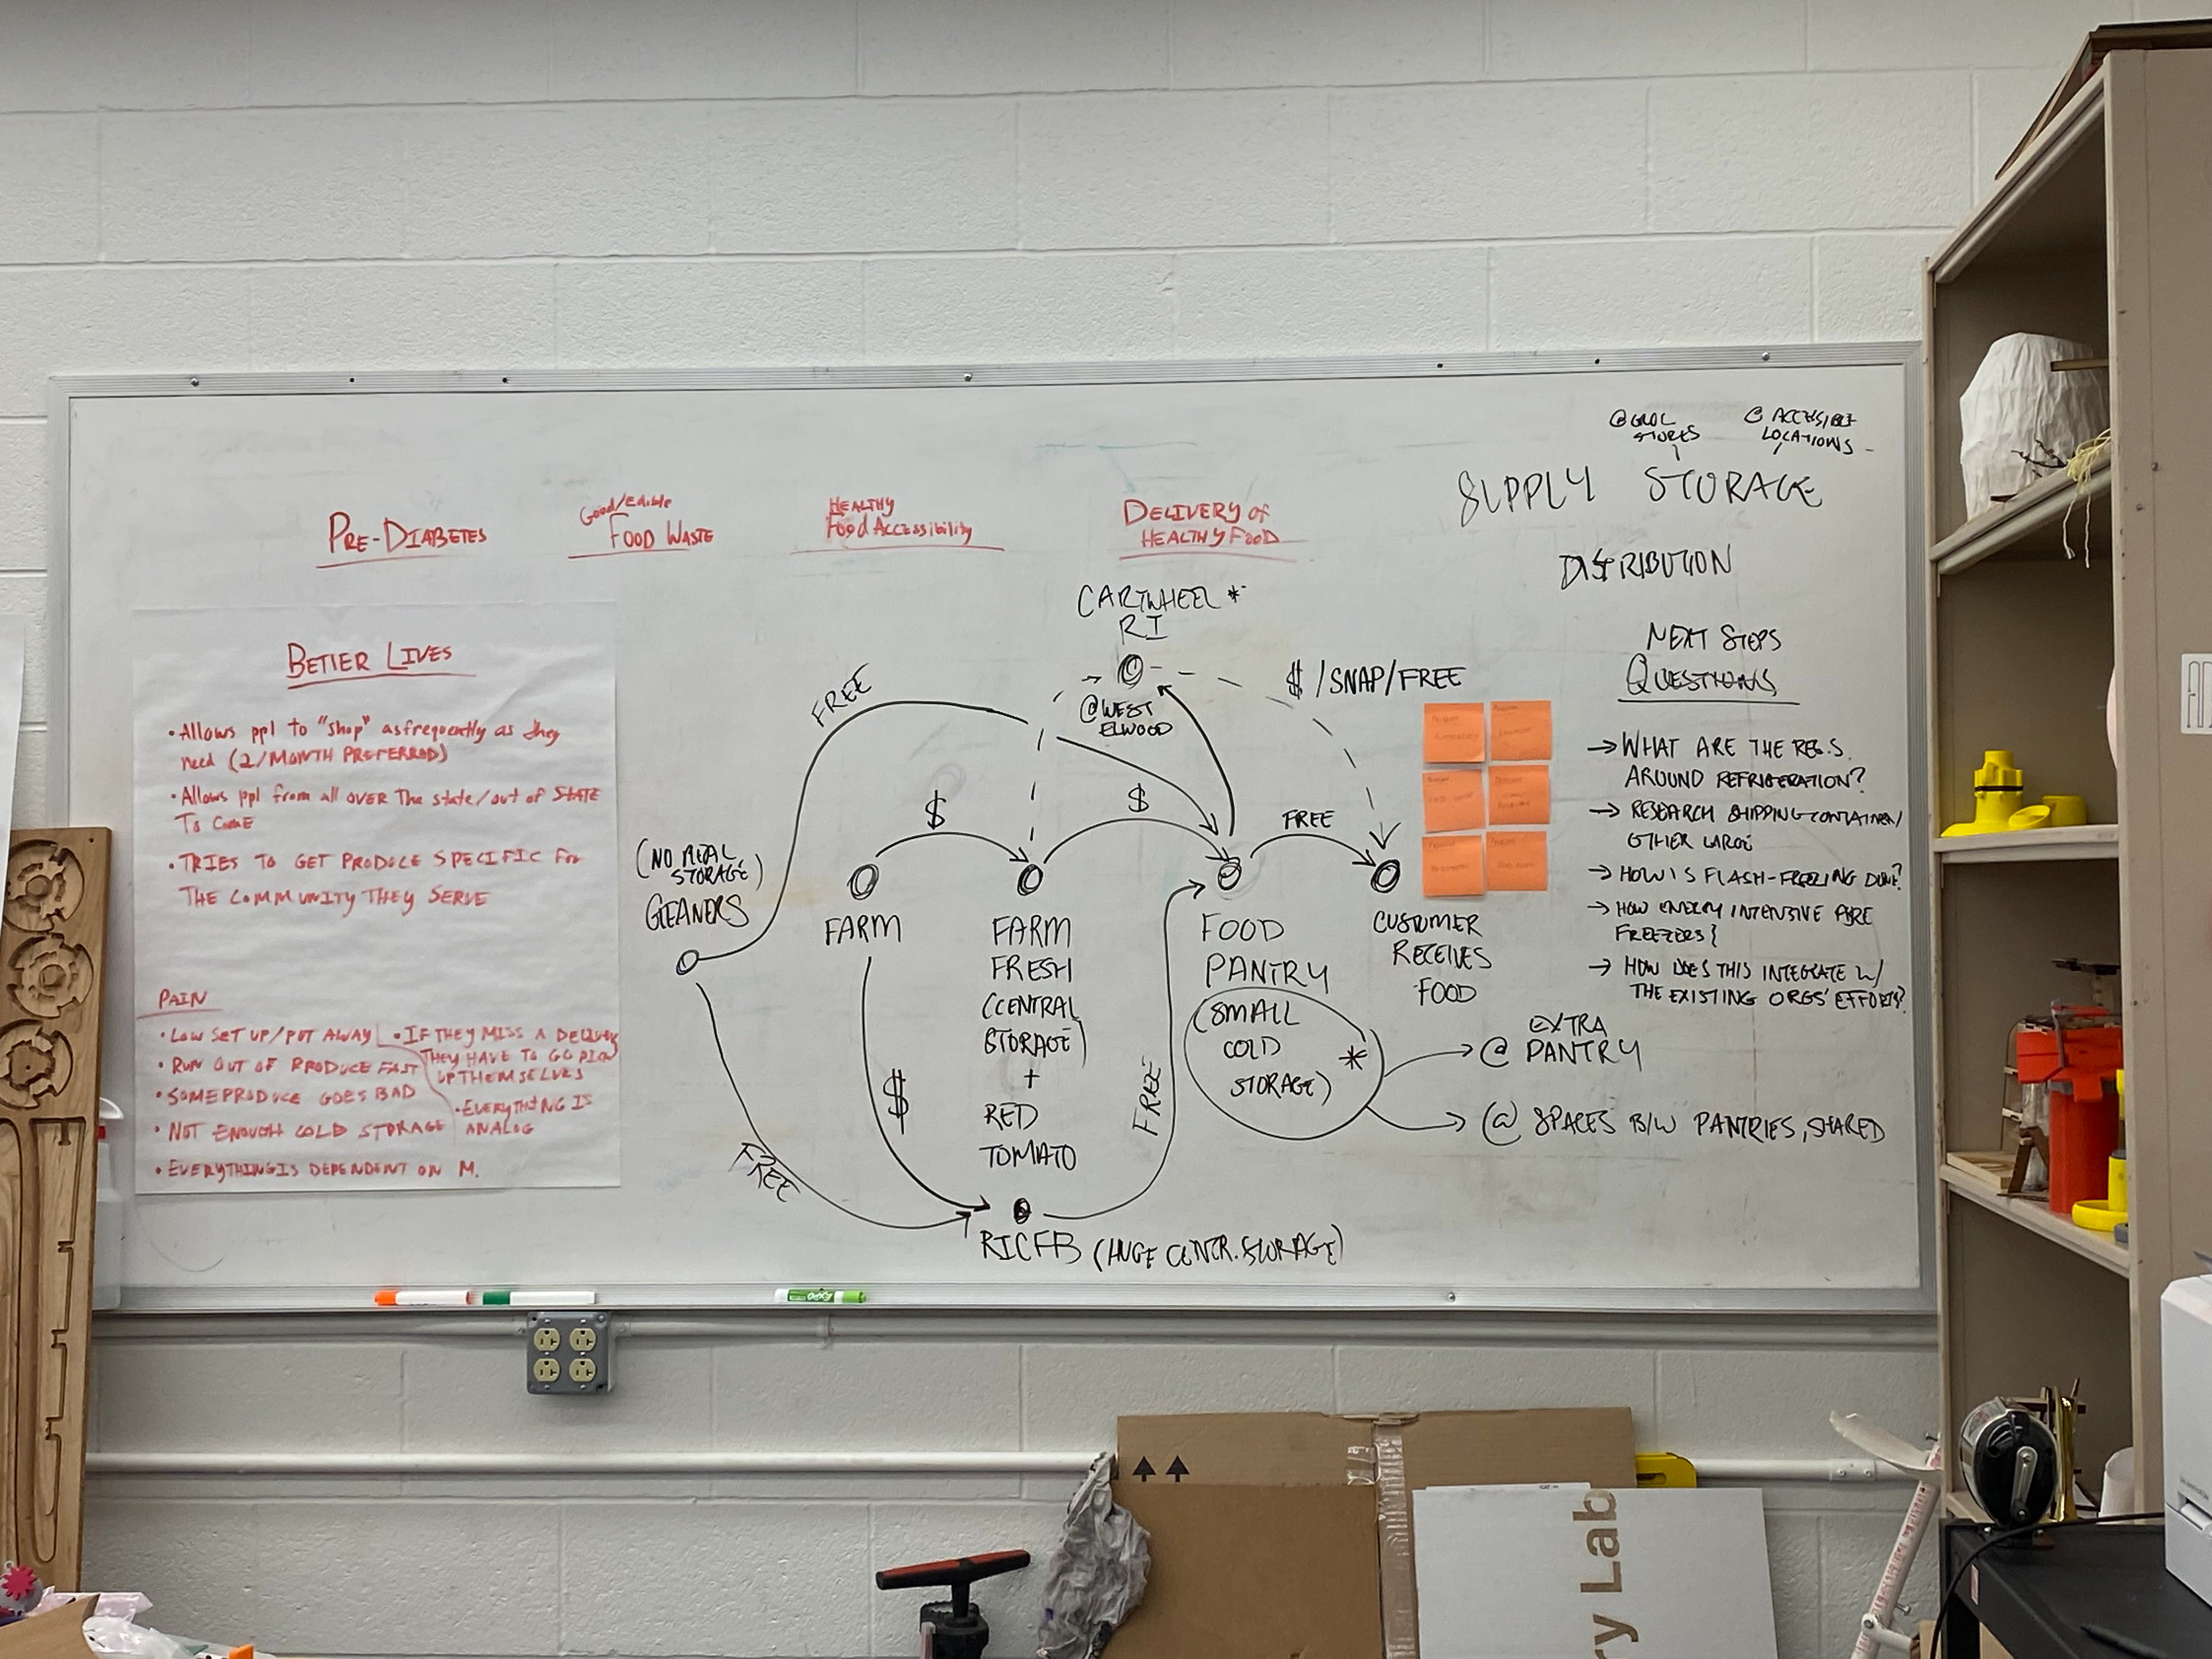 @ ACCESSIBLE
LOCATIONS
STORES
SUPPLY STORAGE
DISTRIBUTION
PRE-DIABETES
Good/Edible
FOOD WASTE
HEALTHY
Food Accessibility
DELIVERY OF
HEALTHY FOOD
BETTER LIVES
• Allows ppl to "shop" as frequently as they
need (2/MONTH PREFERRED)
• Allows ppl from all OVER The state/out of STATE
To COME
• TRIES TO GET PRODUCE SPECIFIC FOR
THE COMMUNITY THEY SERVE
PAIN
• LOW SET UP/PUT AWAY
• RUN OUT OF PRODUCE FAST
• SOME PRODUCE GOES BAD
• NOT ENOUGH COLD STORAGE
• EVERYTHING IS DEPENDENT ON M.
• IF THEY MISS A DELIVERY
THEY HAVE TO GO PICK
UP THEMSELVES
• EVERYTHING IS
ANALOG
CARTWHEEL *
RI
@WEST
ELWOOD
$/SNAP/FREE
FREE
$
$
FREE
(NO REAL
STORAGE)
GLEANERS
FARM
FARM
FRESH
(CENTRAL
STORAGE)
+
RED
TOMATO
FOOD
PANTRY
(SMALL
COLD
STORAGE) *
CUSTOMER
RECEIVES
FOOD
FREE
$
FREE
RICFB (HUGE CENTR. STORAGE)
@ EXTRA
PANTRY
@ SPACES B/W PANTRIES, SHARED
NEXT STEPS
QUESTIONS
→ WHAT ARE THE REG.S.
AROUND REFRIGERATION?
→ RESEARCH SHIPPING CONTAINER/
OTHER LARGE
→ HOW IS FLASH-FREEZING DONE?
→ HOW ENERGY INTENSIVE ARE
FREEZERS?
→ HOW DOES THIS INTEGRATE W/
THE EXISTING ORGS' EFFORTS?
EXPO
ry Lab